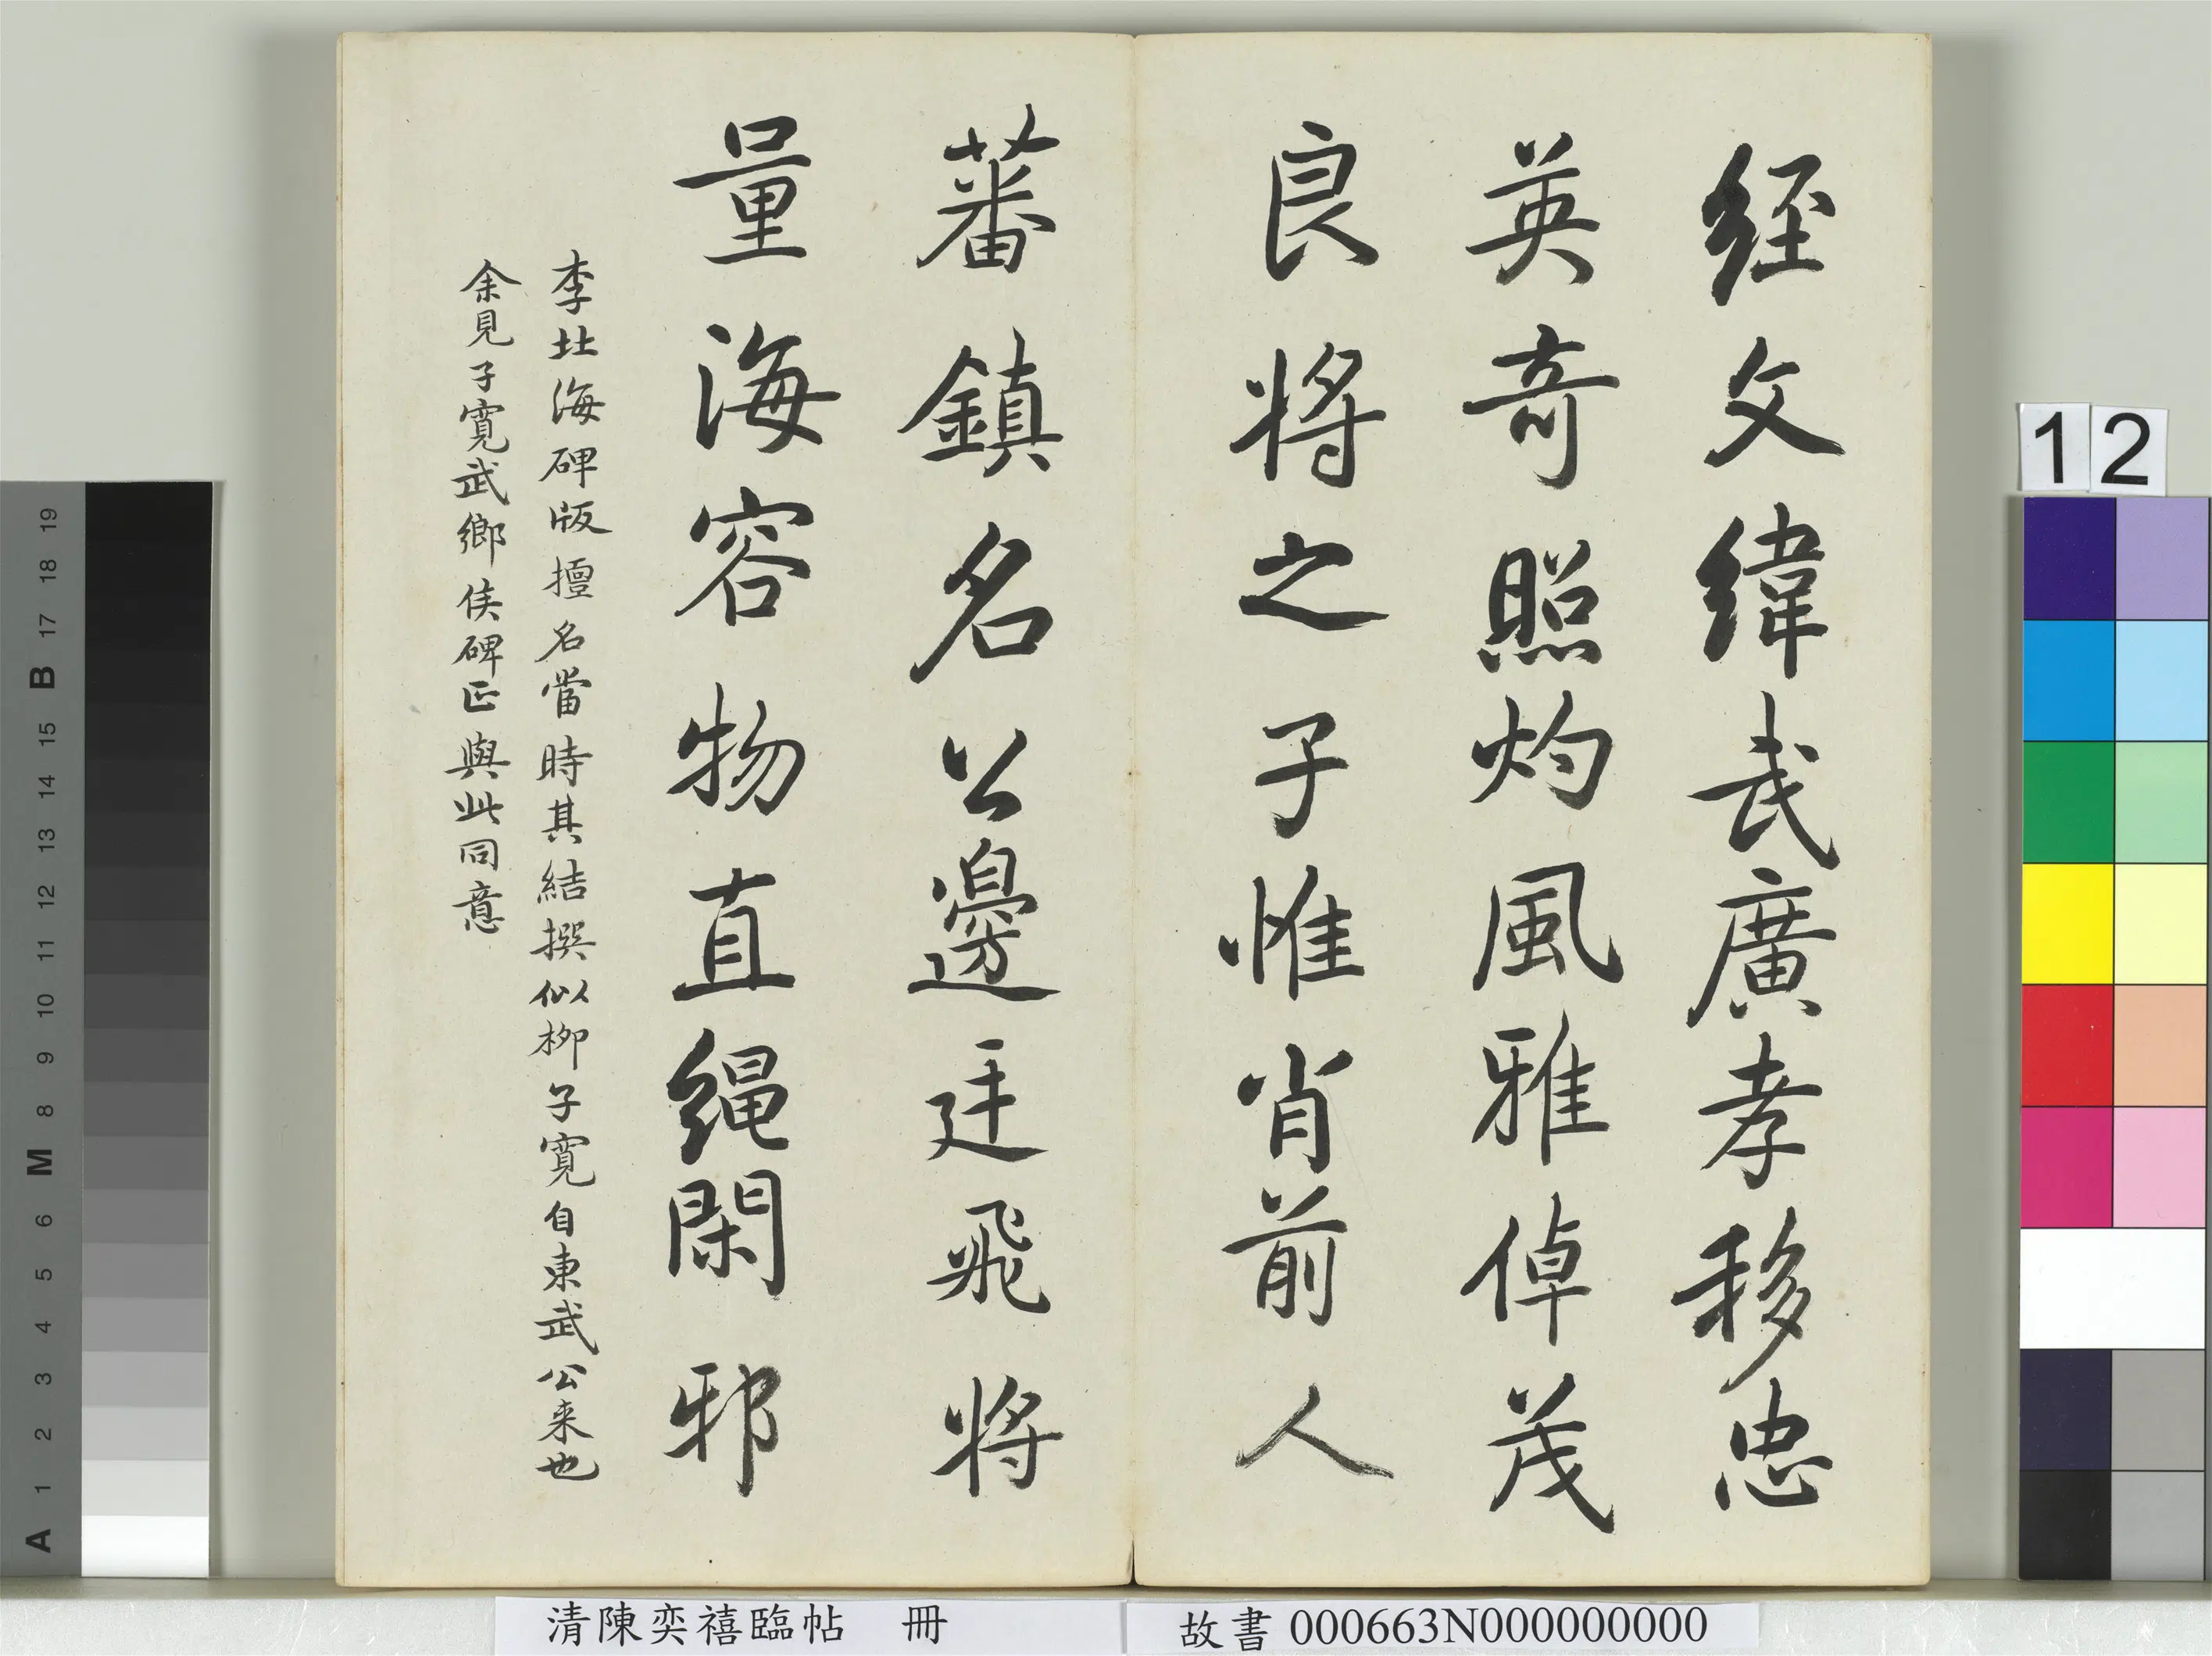 経文緯武廣孝移忠
英奇照灼風雅倬茂
良將之子惟肖前人
蕃鎮名公邊廷飛將
量海容物直繩閑邪
李北海碑版擅名當時其結撰似柳子寬自東武公来也
余見子寬武鄉侯碑正與此同意
清陳奕禧臨帖 冊
故書 000663N000000000
12
19
18
17
B
15
14
13
12
11
10
9
8
M
6
5
4
3
2
1
A